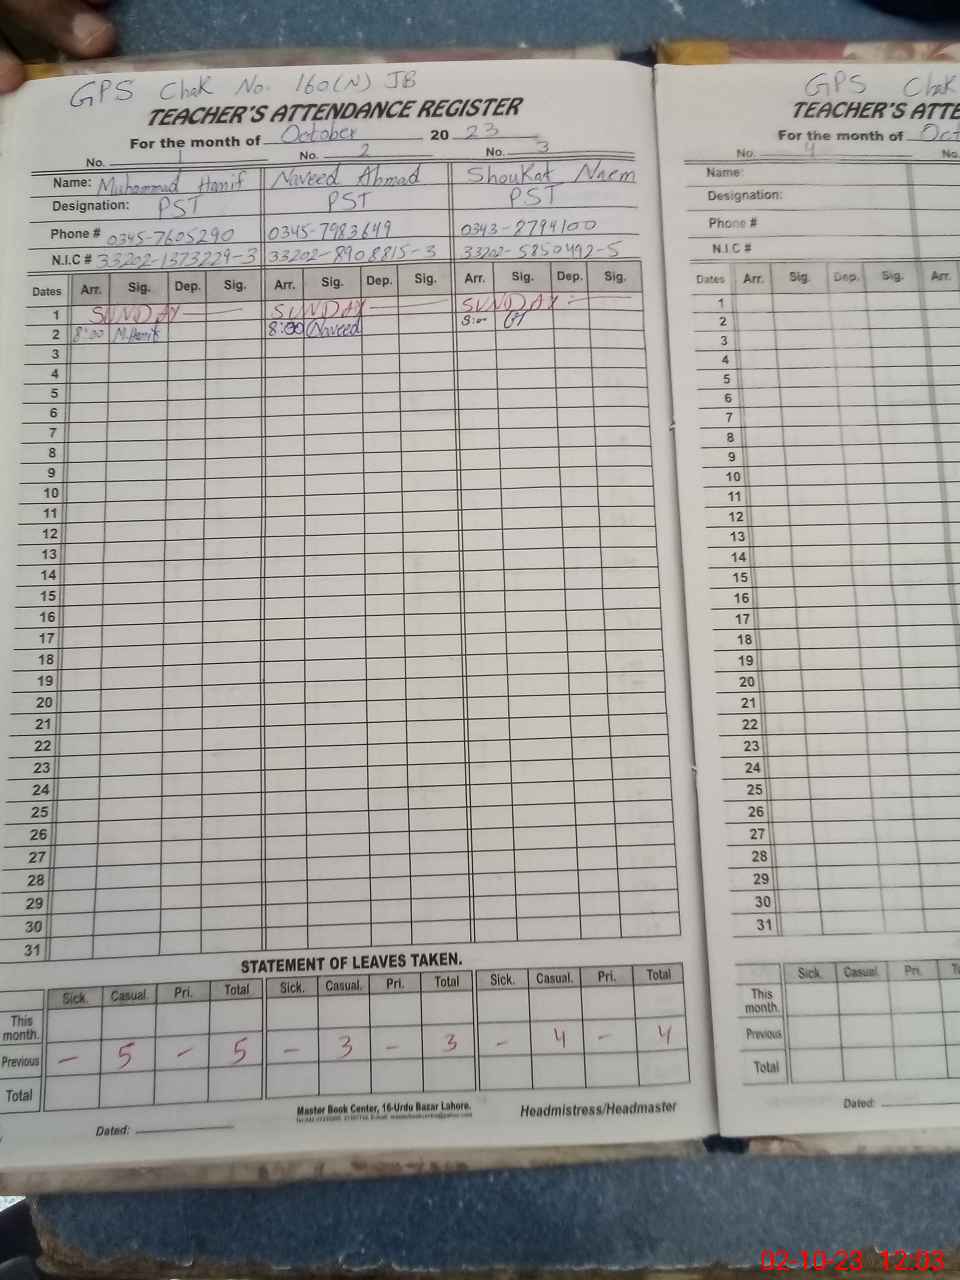 GPS Chak No. 160(N) JB
TEACHER'S ATTENDANCE REGISTER
For the month of October 2023
No. 1 No. 2 No. 3
Name: Muhammad Hanif Naveed Ahmad Shoukat Naem
Designation: PST PST PST
Phone # 0345-7605290 0345-7983649 0343-2794100
N.I.C # 33202-1373229-3 33202-8908815-3 33202-5850492-5
Dates Arr. Sig. Dep. Sig. Arr. Sig. Dep. Sig. Arr. Sig. Dep. Sig.
1 SUNDAY SUNDAY SUNDAY
2 8:00 M.Hanif 8:00 Naveed 8:00
3
4
5
6
7
8
9
10
11
12
13
14
15
16
17
18
19
20
21
22
23
24
25
26
27
28
29
30
31
STATEMENT OF LEAVES TAKEN.
Sick. Casual. Pri. Total Sick. Casual. Pri. Total Sick. Casual. Pri. Total
This month.
Previous - 5 - 5 - 3 - 3 - 4 - 4
Total
Master Book Center, 16-Urdu Bazar Lahore.
Headmistress/Headmaster
Dated:
GPS Chak
TEACHER'S ATTE
For the month of Oct
No. 4 No.
Name:
Designation:
Phone #
N.I.C #
Dates Arr. Sig. Dep. Sig. Arr.
1
2
3
4
5
6
7
8
9
10
11
12
13
14
15
16
17
18
19
20
21
22
23
24
25
26
27
28
29
30
31
Sick. Casual. Pri.
This month.
Previous
Total
Dated:
02-10-23 12:03